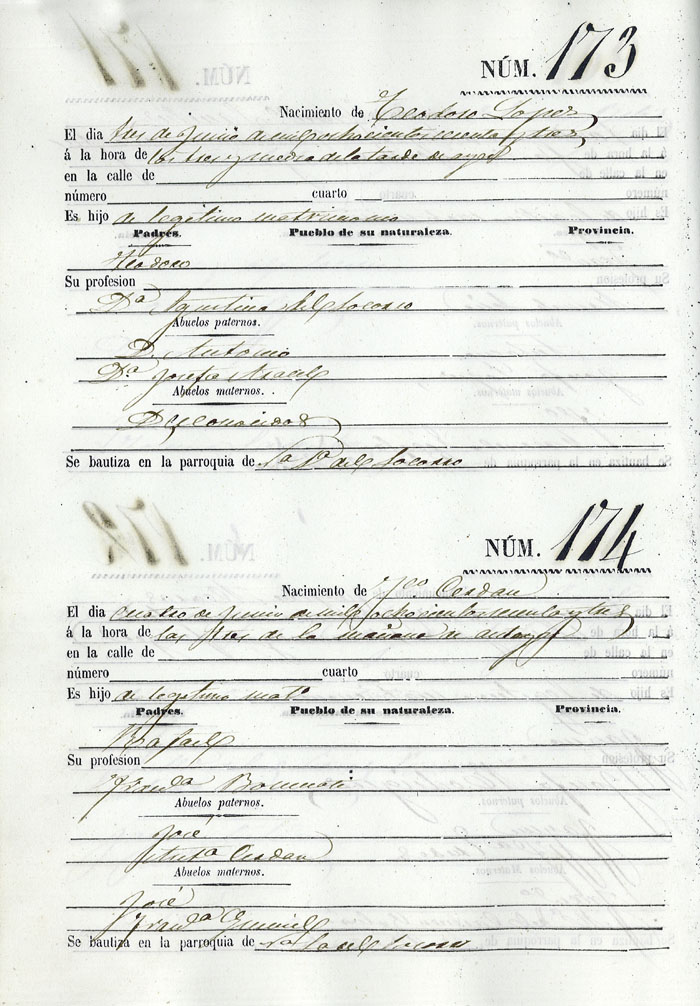 NÚM. 173
Nacimiento de Teodoro Lopez
El dia tres de Junio de mil ochocientos sesenta y tres
á la hora de las tres y media de la tarde de ayer
en la calle de
número cuarto
Es hijo de legitimo matrimonio
Padres. Pueblo de su naturaleza. Provincia.
Teodoro
Su profesion
Dª Agustina del Socorro
Abuelos paternos.
D. Antonio
Dª Josefa
Abuelos maternos.
Desconocidos
Se bautiza en la parroquia de Nª Sª del Socorro
NÚM. 174
Nacimiento de Fco Cerdan
El dia cuatro de Junio de mil ochocientos sesenta y tres
á la hora de las tres de la mañana de
en la calle de
número cuarto
Es hijo de legitimo mato
Padres. Pueblo de su naturaleza. Provincia.
Rafael
Su profesion
Franca
Abuelos paternos.
José
Antª Cerdan
Abuelos maternos.
José
Franca
Se bautiza en la parroquia de Nª Sª del Socorro